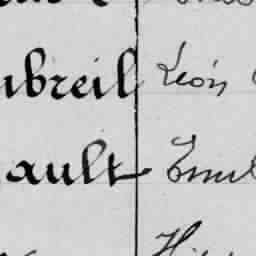 ubreil Léon
ault Emil